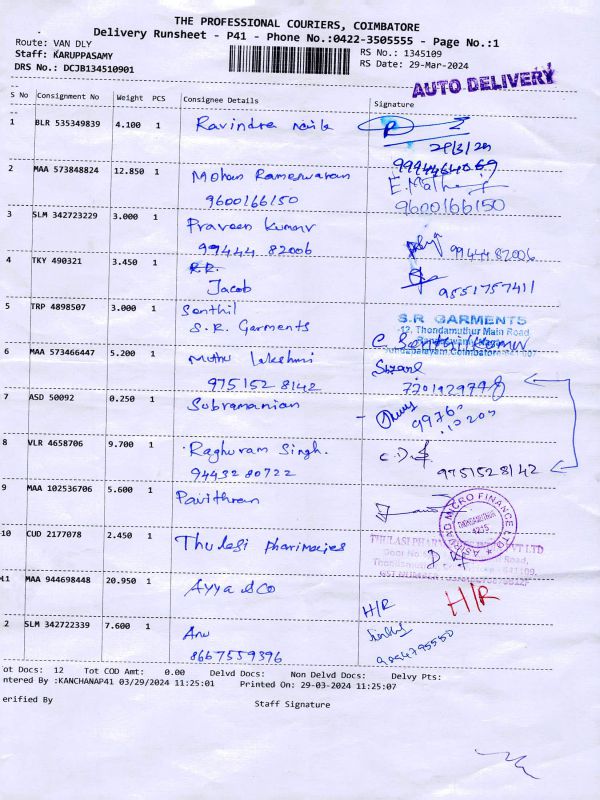 THE PROFESSIONAL COURIERS, COIMBATORE
Delivery Runsheet - P41 - Phone No.:0422-3505555 - Page No.:1
Route: VAN DLY
Staff: KARUPPASAMY
DRS No.: DCJB134510901
RS No.: 1345109
RS Date: 29-Mar-2024
AUTO DELIVERY
S No Consignment No Weight PCS Consignee Details Signature
1 BLR 535349839 4.100 1 Ravindra
29/3/24
9994464069
2 MAA 573848824 12.850 1 Mohan Rameswaran
9600166150
9600166150
3 SLM 342723229 3.000 1 Praveen Kumar
99444 82006
99444 82006
4 TKY 490321 3.450 1
Jacob
9551757411
5 TRP 4898507 3.000 1 Senthil
S.R. Garments
S.R GARMENTS
12, Thondamuthur Main Road
C. Senthil Kumar
6 MAA 573466447 5.200 1 Muthu lakshmi
975152 8142
7 ASD 50092 0.250 1 Subramanian
8 VLR 4658706 9.700 1 Raghuram Singh.
94432 80722
9751528142
9 MAA 102536706 5.600 1 Pavithran
ASIRVAD MICRO FINANCE LTD
10 CUD 2177078 2.450 1 Thulasi pharmacies
11 MAA 944698448 20.950 1 Ayya &CO
H/R
H/R
2 SLM 342722339 7.600 1 Anu
8667559396
ot Docs: 12 Tot COD Amt: 0.00 Delvd Docs: Non Delvd Docs: Delvy Pts:
ntered By :KANCHANAP41 03/29/2024 11:25:01 Printed On: 29-03-2024 11:25:07
erified By
Staff Signature